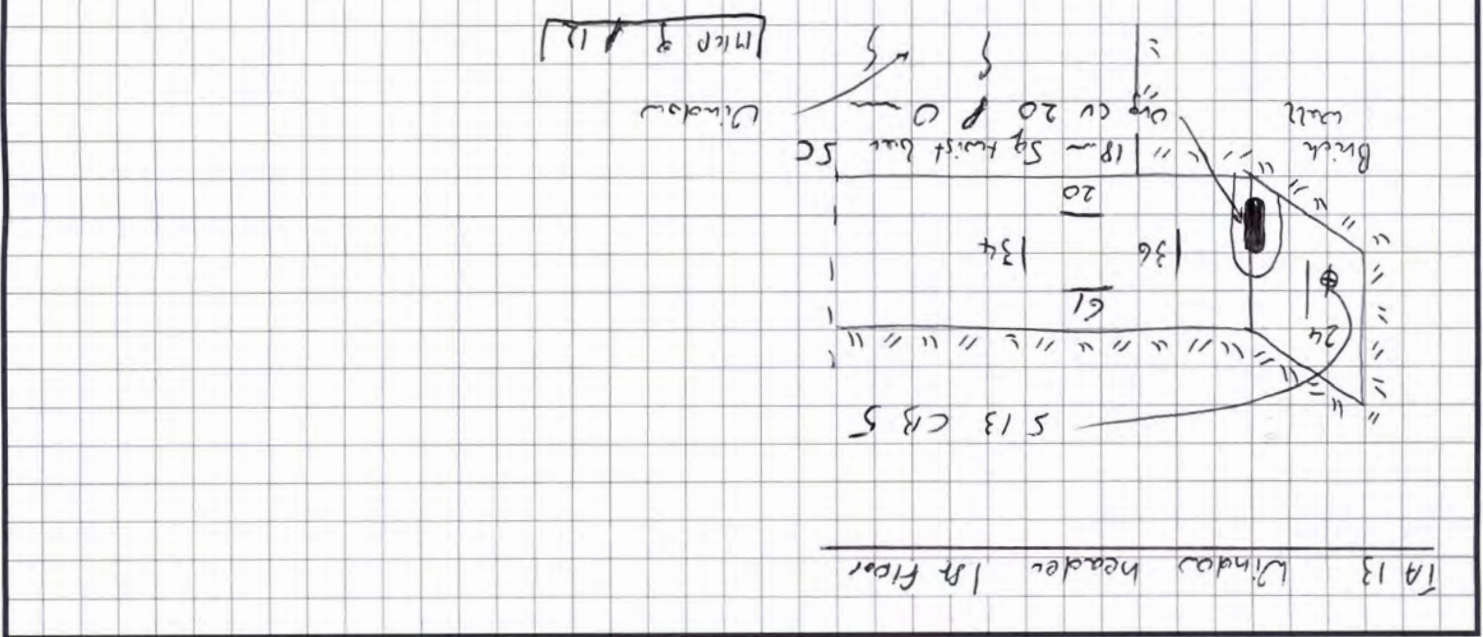 TA 13 Window header 1st Floor
S 13 CB 5
24
19
36 34
20
Brick wall
18mm Sq twist bar SC
cv 20
Window